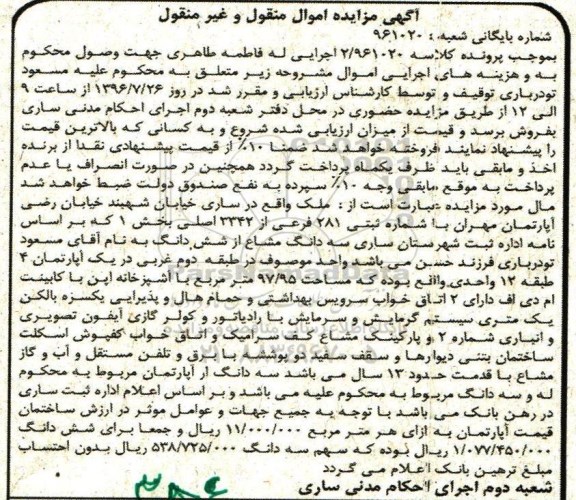 آگهی مزایده اموال منقول و غیر منقول
شماره بایگانی شعبه : ۹۶۱۰۲۰
بموجب پرونده کلاسه ۲/۹۶۱۰۲۰ اجرایی له فاطمه طاهری جهت وصول محکوم
به و هزینه های اجرایی اموال مشروحه زیر متعلق به محکوم علیه مسعود
تودرباری توقیف و توسط کارشناس ارزیابی و مقرر شد در روز ۱۳۹۶/۷/۲۶ از ساعت ۹
الی ۱۲ از طریق مزایده حضوری در محل دفتر شعبه دوم اجرای احکام مدنی ساری
بفروش برسد و قیمت از میزان ارزیابی شده شروع و به کسانی که بالاترین قیمت
را پیشنهاد نمایند فروخته خواهد شد ضمنا ۱۰٪ از قیمت پیشنهادی نقدا از برنده
اخذ و مابقی باید ظرف یکماه پرداخت گردد همچنین در صورت انصراف یا عدم
پرداخت به موقع مابقی وجه ۱۰٪ سپرده به نفع صندوق دولت ضبط خواهد شد
مال مورد مزایده عبارت است از : ملک واقع در ساری خیابان شهبند خیابان رضی
آپارتمان مهران با شماره ثبتی ۲۸۱ فرعی از ۳۳۴۲ اصلی بخش ۱ که بر اساس
نامه اداره ثبت شهرستان ساری سه دانگ مشاع از شش دانگ به نام آقای مسعود
تودرباری فرزند حسن می باشد واحد موصوف در طبقه دوم غربی در یک آپارتمان ۴
طبقه ۱۲ واحدی واقع بوده که مساحت ۹۷/۹۵ متر مربع با آشپزخانه اپن با کابینت
ام دی اف دارای ۲ اتاق خواب سرویس بهداشتی و حمام هال و پذیرایی یکسره بالکن
یک متری سیستم گرمایش و سرمایش با رادیاتور و کولر گازی آیفون تصویری
و انباری شماره ۲ و پارکینگ مشاع کف سرامیک و اتاق خواب کفپوش اسکلت
ساختمان بتنی دیوارها و سقف سفید و پوشیده با برق و تلفن مستقل و آب و گاز
مشاع با قدمت حدود ۱۳ سال می باشد سه دانگ از آپارتمان مربوط به محکوم
له و سه دانگ مربوط به محکوم علیه می باشد و بر اساس اعلام اداره ثبت ساری
در رهن بانک می باشد با توجه به جمیع جهات و عوامل موثر در ارزش ساختمان
قیمت آپارتمان به ازای هر متر مربع ۱۱/۰۰۰/۰۰۰ ریال و جمعا برای شش دانگ
۱/۰۷۷/۴۵۰/۰۰۰ ریال بوده که سهم سه دانگ ۵۳۸/۷۲۵/۰۰۰ ریال بدون احتساب
مبلغ ترهین بانک اعلام می گردد
شعبه دوم اجرای احکام مدنی ساری